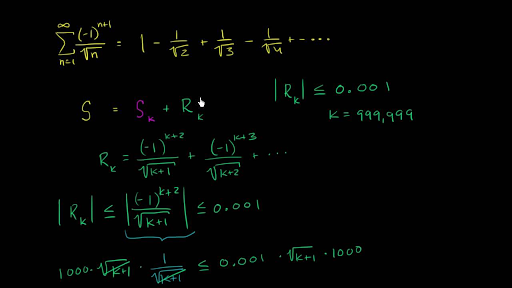 ∞ ∑ n=1 (-1)^{n+1}/√n = 1 - 1/√2 + 1/√3 - 1/√4 + - ····
S = S_k + R_k
|R_k| ≤ 0.001
k = 999,999
R_k = (-1)^{k+2}/√(k+1) + (-1)^{k+3}/√(k+2) + ···
|R_k| ≤ |(-1)^{k+2}/√(k+1)| ≤ 0.001
1000 · √(k+1) · 1/√(k+1) ≤ 0.001 · √(k+1) · 1000